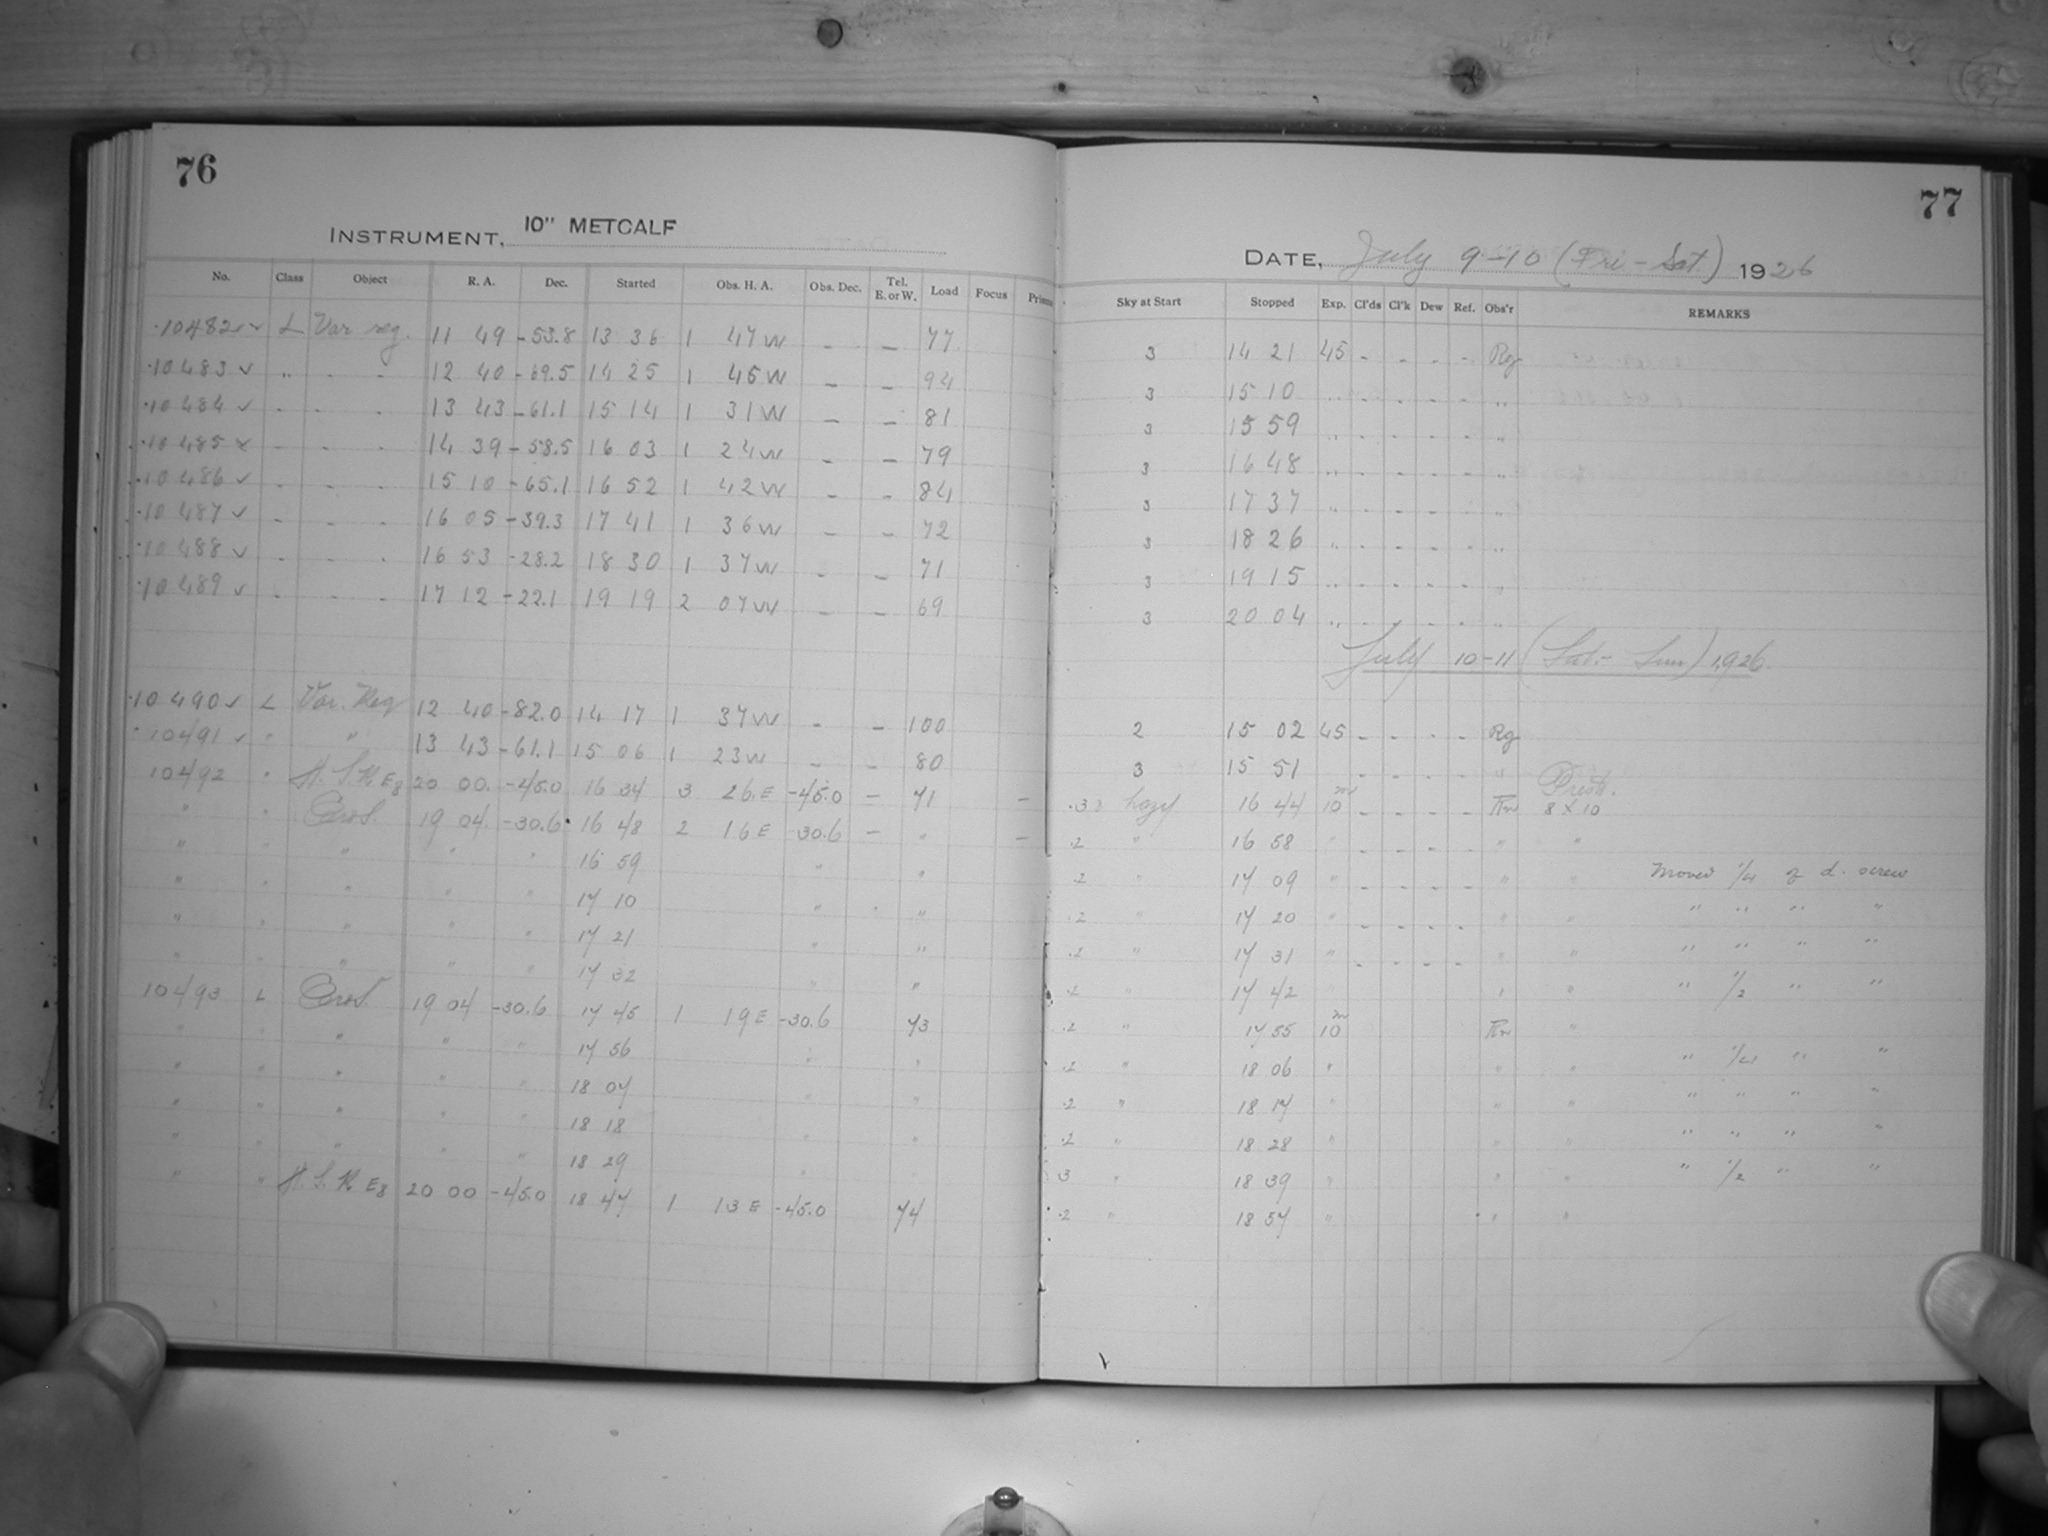 76
INSTRUMENT, 10" METCALF
No. Class Object R. A. Dec. Started Obs. H. A. Obs. Dec. Tel. E. or W. Load Focus
10482 L Var reg. 11 49 -53.8 13 36 1 47 W - - 77
10483 " - - 12 40 -69.5 14 25 1 45 W - - 94
10484 - - - 13 43 -61.1 15 14 1 31 W - - 81
10485 - - - 14 39 -58.5 16 03 1 24 W - - 79
10486 - - - 15 10 -65.1 16 52 1 42 W - - 84
10487 - - - 16 05 -39.3 17 41 1 36 W - - 72
10488 - - - 16 53 -28.2 18 30 1 37 W - - 71
10489 - - - 17 12 -22.1 19 19 2 07 W - - 69
10490 L Var. Reg 12 40 -82.0 14 17 1 37 W - - 100
10491 " " 13 43 -61.1 15 06 1 23 W - - 80
10492 " E8 20 00. -45.0 16 34 3 26 E -45.0 - 71 -
" " Eros. 19 04. -30.6 16 48 2 16 E -30.6 - " -
" " " " " 16 59 " "
" " " " " 17 10 " "
" " " " " 17 21 " "
" " " " " 17 32 " "
10493 L Eros. 19 04 -30.6 17 45 1 19 E -30.6 73
" " " " " 17 56 " "
" " " " " 18 07 " "
" " " " " 18 18 " "
" " " " " 18 29 " "
" " E8 20 00 -45.0 18 47 1 13 E -45.0 74
77
DATE, July 9-10 (Fri - Sat.) 1926
Sky at Start Stopped Exp. Cl'ds Cl'k Dew Ref. Obs'r REMARKS
3 14 21 45 - - - - Rg
3 15 10 " - - - - "
3 15 59 " - - - - "
3 16 48 " - - - - "
3 17 37 " - - - - "
3 18 26 " - - - - "
3 19 15 " - - - - "
3 20 04 " - - - - "
July 10-11 (Sat.- Sun) 1926.
2 15 02 45 - - - - Rg
3 15 51 "
hazy 16 44 10m - - - - 8 X 10
.2 " 16 58 " - - - - " "
.2 " 17 09 " - - - - " " Moved 1/4 of d. screw
.2 " 17 20 " - - - - " " " " " "
.2 " 17 31 " - - - - " " " " " "
.2 " 17 42 " " " " 1/2 " "
.2 " 17 55 10m "
.2 " 18 06 " " " " 1/4 " "
.2 " 18 17 " " " " " " "
.2 " 18 28 " " " " " " "
3 " 18 39 " " " " 1/2 " "
.2 " 18 57 " " "